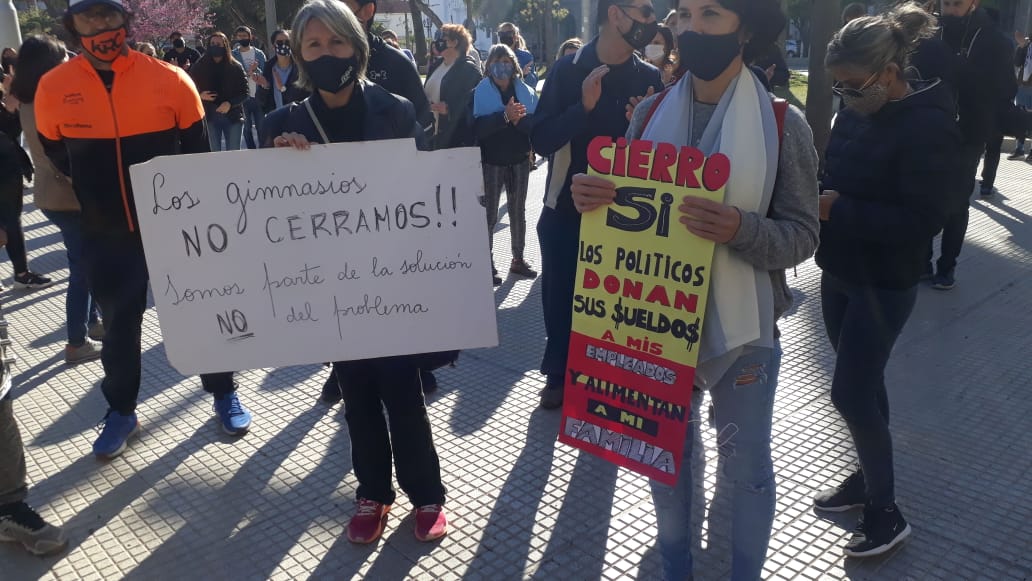 Los gimnasios
NO CERRAMOS!!
Somos parte de la solución
NO del problema
CiERRO
Si
LOS POLiTiCOS
DONAN
SUS $UELDO$
A MIS
EMPLEADOS
Y ALiMENTAN
A Mi
FAMiLiA